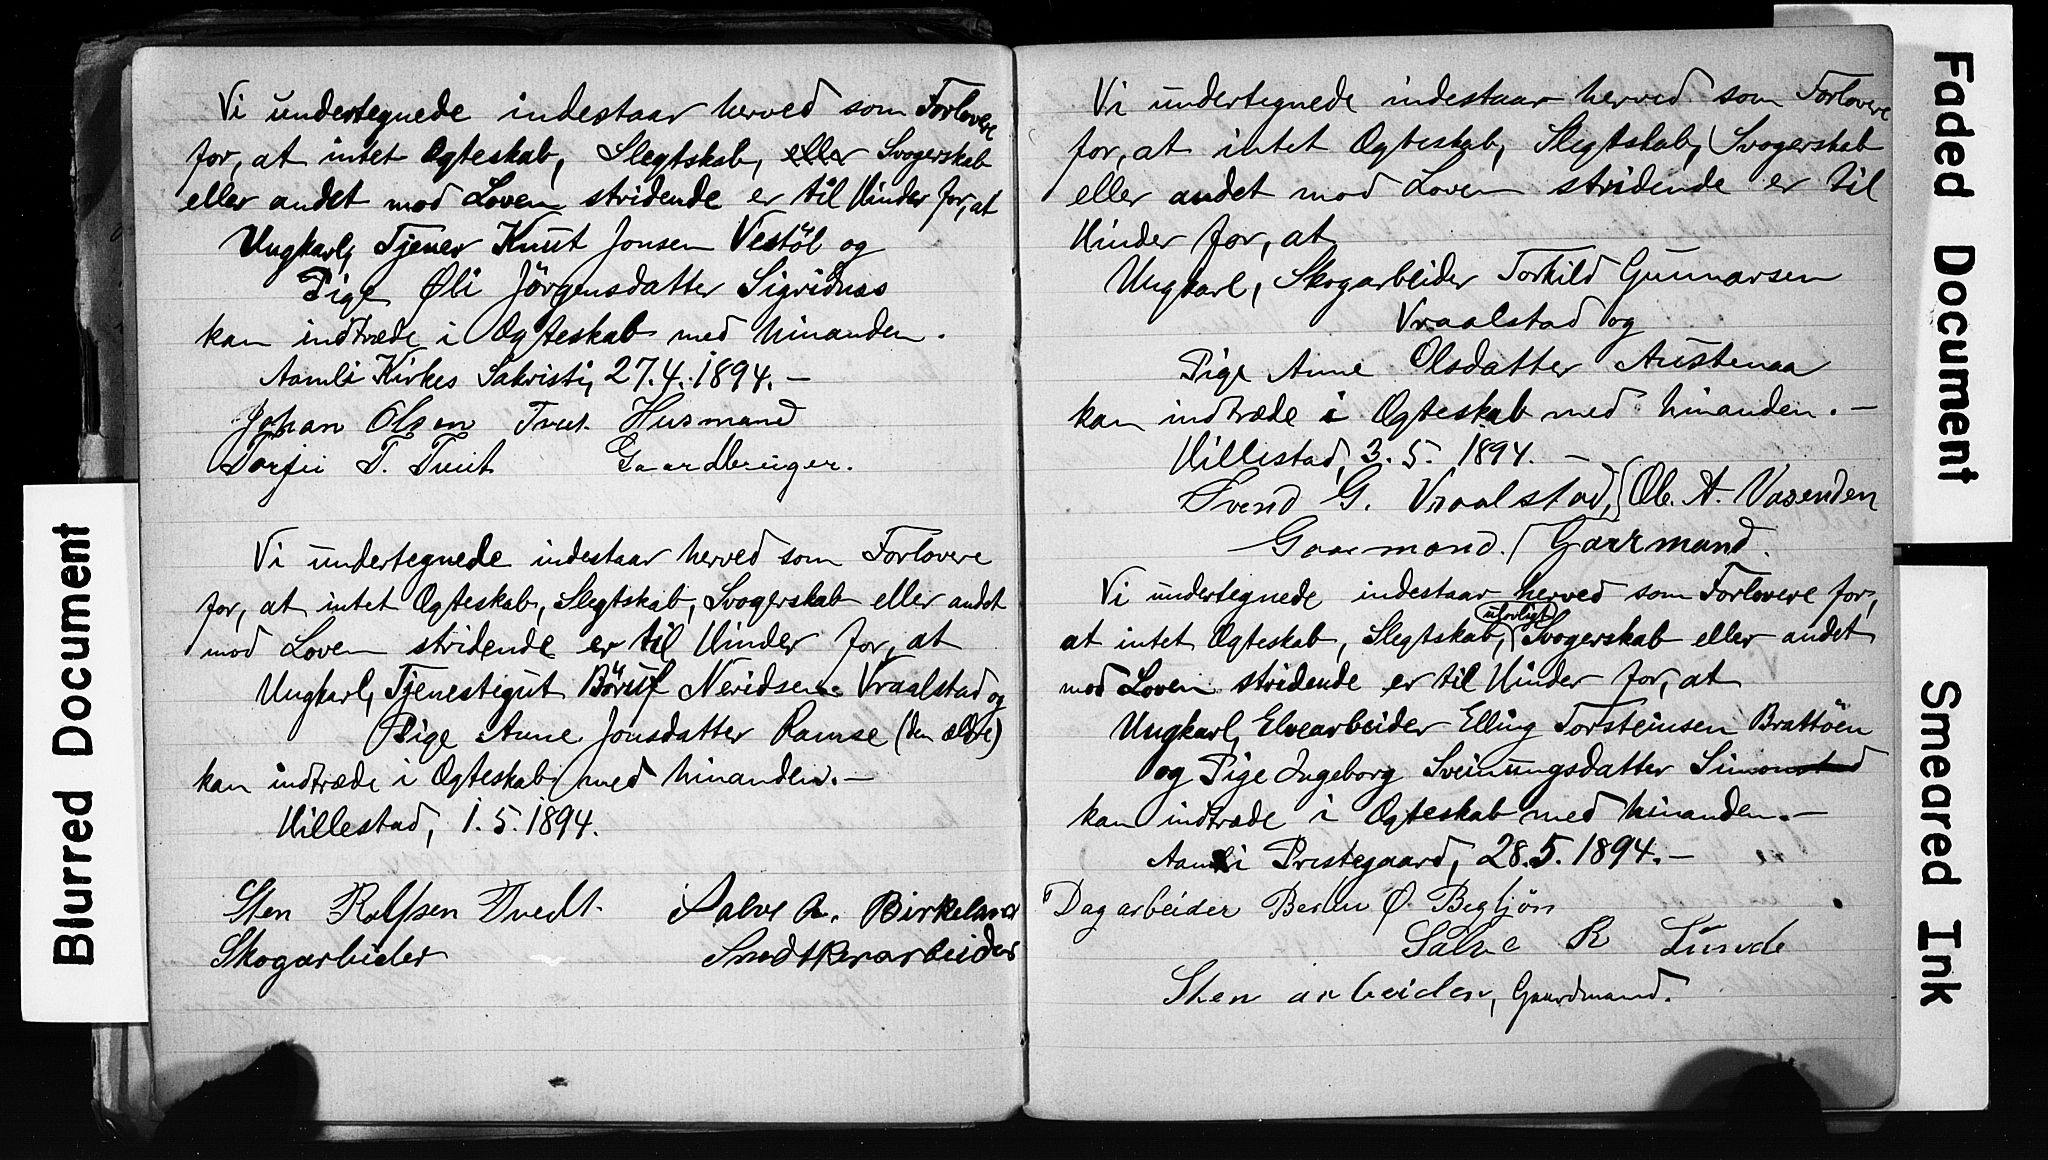 Vi undertegnede indestaar herved som Forlovere
for, at intet Ægteskab, Slegtskab, eller Svogerskab
eller andet mod Loven stridende er til Hinder for, at
Ungkarl, Tjener Knut Jonsen Vestöl og
Pige Øli Jörgensdatter Sigridnæs
kan indtræde i Ægteskab med hinanden.
Aamli Kirkes Sakristi, 27.4.1894. —
Johan Olsen Tveit. Husmand
Torjii T. Tveit Gaardbruger.
Vi undertegnede indestaar herved som Forlovere
for, at intet Ægteskab, Slegtskab, Svogerskab eller andet
mod Loven stridende er til Hinder for, at
Ungkarl, Tjenestegut Börulf Neridsen Vraalstad og
Pige Anne Jonsdatter Ramse (den ældre)
kan indtræde i Ægteskab med hinanden. —
Hillestad, 1.5.1894.
Sten Rolfsen Tvedt. Salve A. Birkeland
Skogarbieder Snedkerarbeider
Vi undertegnede indestaar herved som Forlovere
for, at intet Ægteskab, Slegtskab, Svogerskab
eller andet mod Loven stridende er til
Hinder for, at
Ungkarl, Skogarbeider Torkild Gunnarsen
Vraalstad og
Pige Anne Olsdatter Austenaa
kan indtræde i Ægteskab med hinanden. —
Hillestad, 3.5.1894. —
Svend G. Vraalstad, Ol. A. Vasenden
Gaarmand. Gaarmand.
Vi undertegnede indestaar herved som Forlovere for,
at intet Ægteskab, Slegtskab, ulovligt Svogerskab eller andet
mod Loven stridende er til Hinder for, at
Ungkarl, Elvearbeider Elling Torsteinsen Brattöen
og Pige Ingeborg Sveinungsdatter Simonstad
kan indtræde i Ægteskab med hinanden. —
Aamli Prestegaard, 28.5.1894. —
Dagarbeider Ø. Begljön
Salve R Lunde
Sten arbeider, Gaardmand.
Blurred Document
Faded Document
Smeared Ink